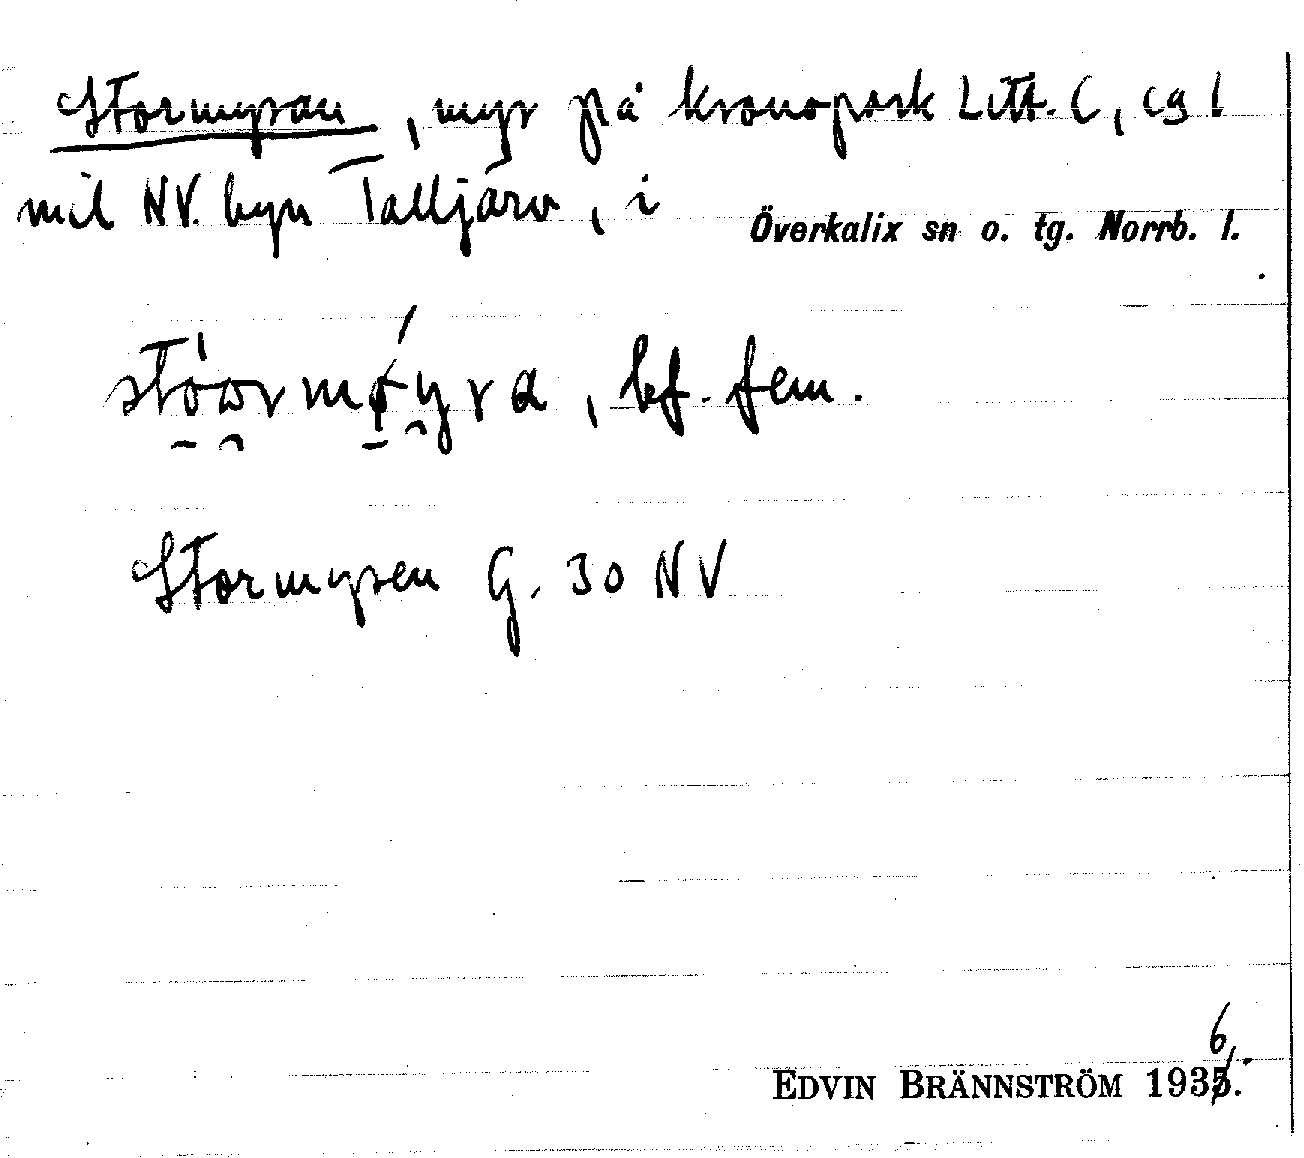 Stormyran, myr på kronopark Litt. C, ca 1
mil NV. byn Talljärv, i
Överkalix sn o. tg. Norrb. l.
bf. fem.
Stormyren G. 30 NV
6
EDVIN BRÄNNSTRÖM 1935.